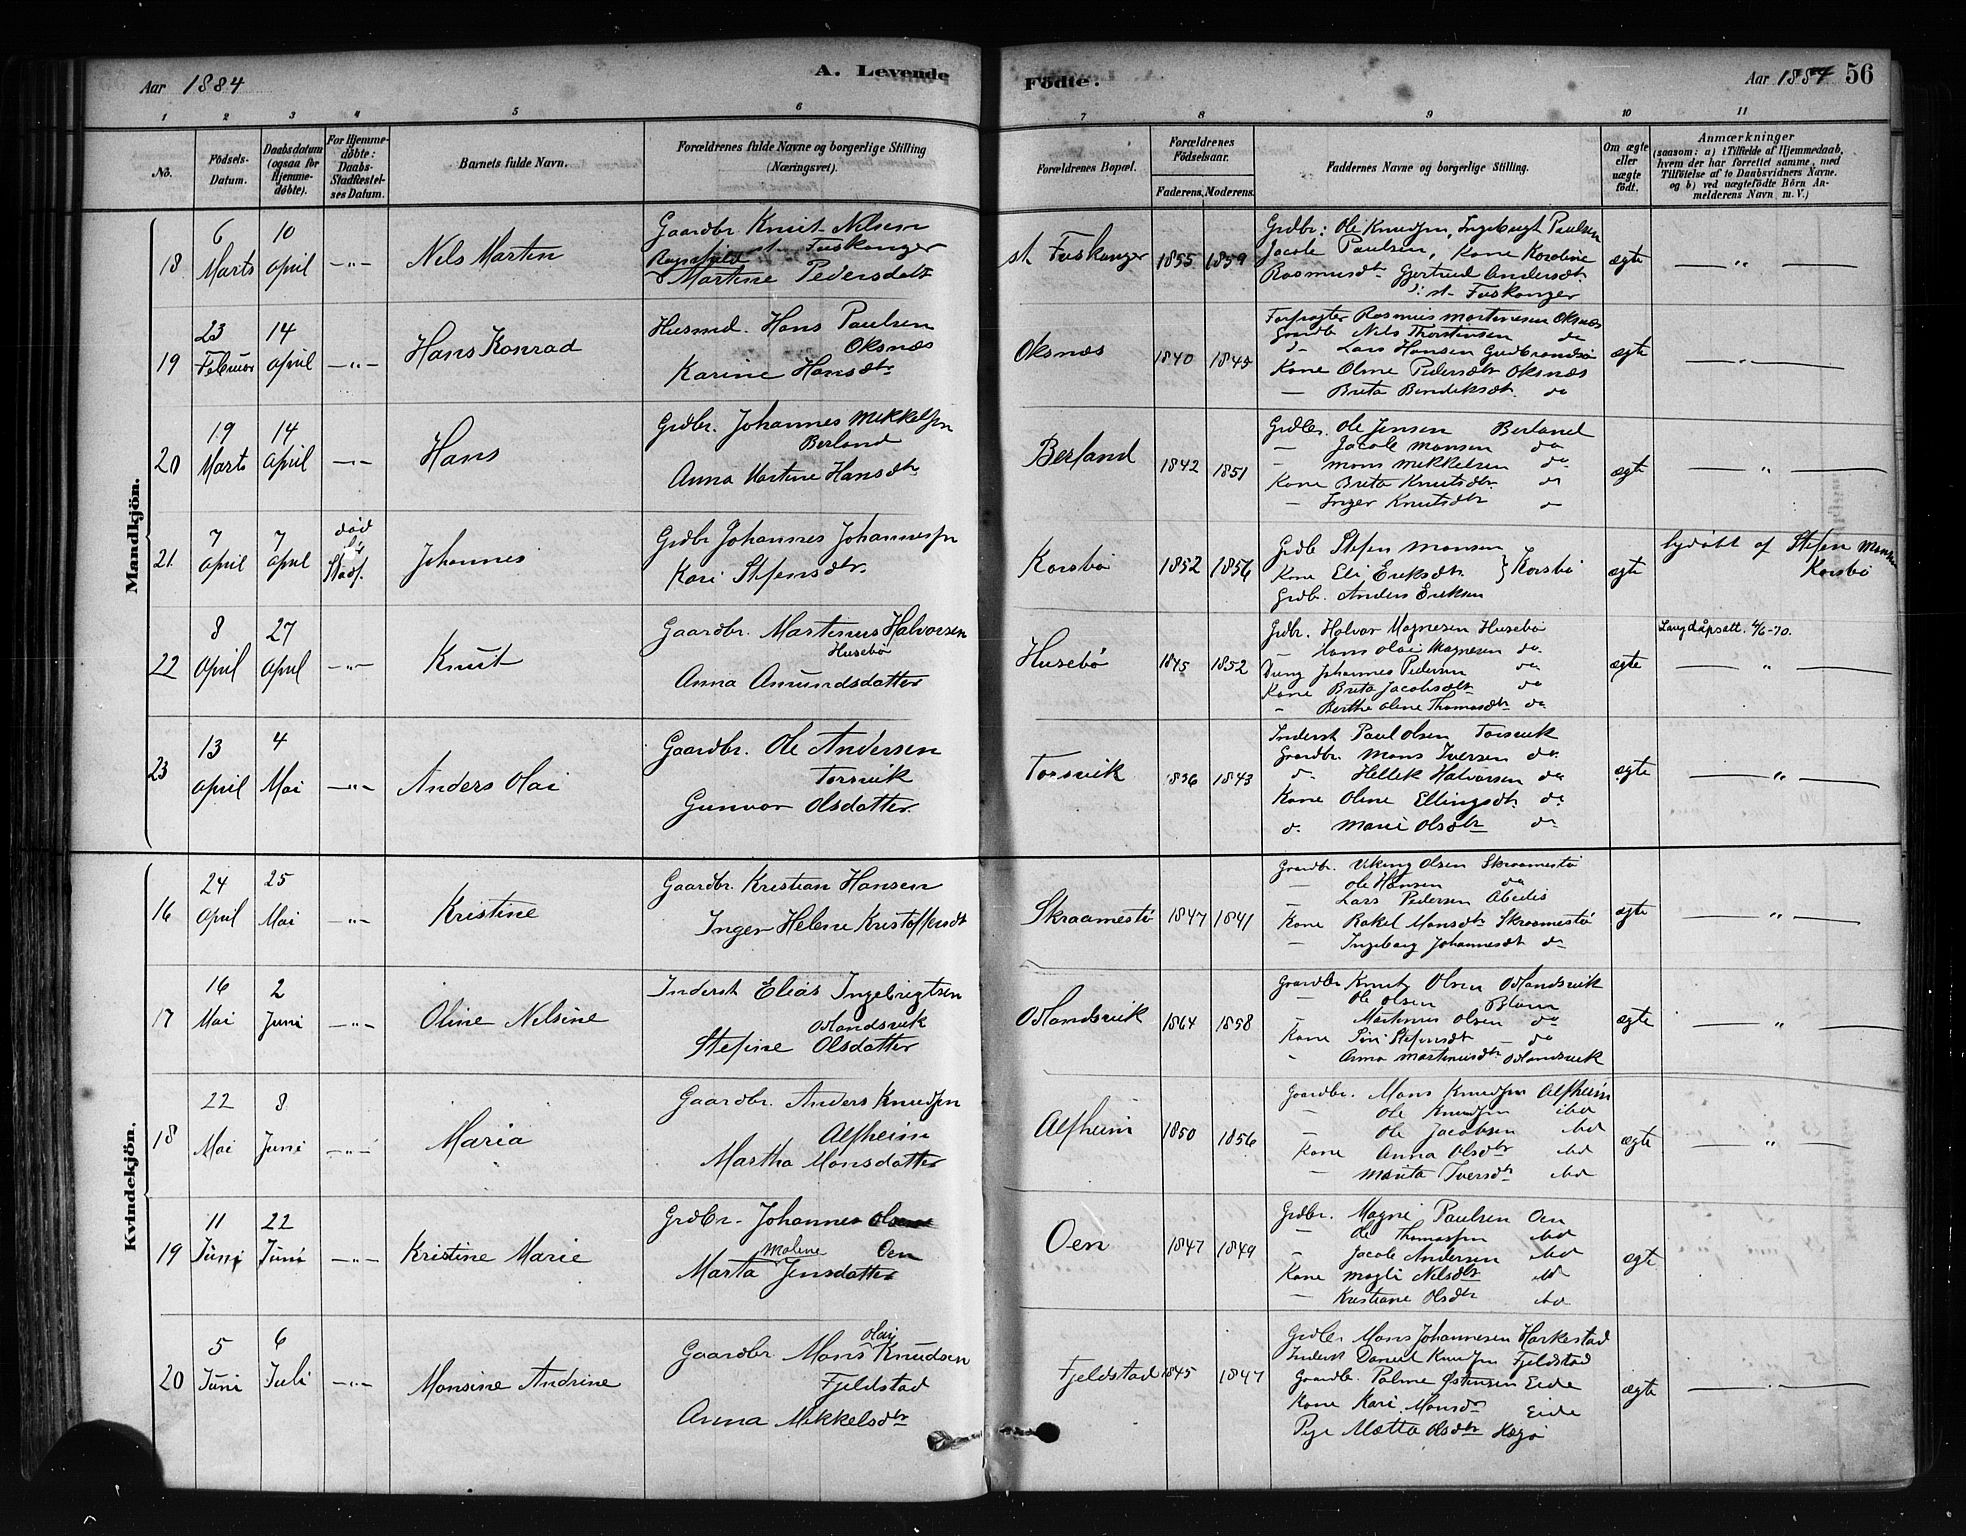 Aar 1884
A. Levende
Födte.
Aar 1884
56
1 2 3 4 5 6 7 8 9 10 11
No.
Födsels-Datum.
Daabsdatum (ogsaa for Hjemmedøbte).
For Hjemmedøbte: Daabs-Stadfæstelses Datum.
Barnets fulde Navn.
Forældrenes fulde Navne og borgerlige Stilling (Næringsvei).
Forældrenes Bopæl.
Forældrenes Födselsaar.
Faderens. Moderens.
Faddernes Navne og borgerlige Stilling.
Om ægte eller uægte födt.
Anmærkninger
(saasom: a) i Tilfælde af Hjemmedaab, hvem der har forrettet samme, med Tilföielse af to Daabsvidners Navne. og b) ved uægtefödte Börn Anmelderens Navn m. V.)
Mandkjön.
18
6 Marts
10 April
-"-
Nels Martin
Gaardbr Knut Nilsen
st. Fuskanger
Ragnhild
Martine Pedersdatt
st Fuskanger
1855 1859
Grdbr: Ole Knudsen, Ingebrigt Paulsen
Jacob Paulsen, Kone Karoline
Rasmusdt. Gjertrud Andersdt.
: st. Fuskanger
ægte
— " —
19
23 Februar
14 April
-"-
Hans Konrad
Husmd. Hans Paulsen
Oksnæs
Karine Hansdtr
Oksnæs
1840 1845
Forpagter Rasmus Martinesen Oksnæs
Gardb Nils Thorstensen do
d- Lars Hansen
Kone Oline Pedersdtr Oksnæs
— Breta Bendeksdt. do
ægte
— " —
20
19 Marts
14 April
-"-
Hans
Grdbr. Johannes Mekkelsen
Berland
Anna Martine Hansdtr
Berland
1842 1851
Grdbr. Ole Jensen Berland
— Jacob Monsen do
— Mons Mekkelsen do
Kone Breta Knutsdtr do
— Inger Knutsdtr do
ægte
— " —
21
7 April
7 April
død
Stadf.
Johannes
Grdbr Johannes Johannessen
Kari Stefensdtr.
Korsbø
1852 1856
Grdb Stefen Monsen
Kone Eli Eriksdtr } Korsbø
Grdb. Anders Eriksen
ægte
af Stefen Monsen
Korsbø
22
8 April
27 April
-"-
Knut
Gaardbr. Martinus Halvorsen
Husebø
Anna Amundsdatter
Husebø
1845 1852
Grdbr. Halvor Magnesen Husebø
— Hans Olai Magnesen do
Ung Johannes Pedersen do
Kone Breta Jacobsdtr do
" Berthe Oline Thomasdtr do
ægte
Langdåpsatt. 4/6-70.
— " —
23
13 April
4 Mai
-"-
Anders Olai
Gaardbr. Ole Andersen
Torsvik
Gunvor Olsdatter.
Torsvik
1836 1843
Inderst Paul Olsen Torsvik
Gaardbr. Mons Iversen do.
d. Hellek Halvorsen do
Kone Oline Ellingsdtr do
d. Marie Olsdtr do
ægte
— " —
Kvindekjön.
16
24 April
25 Mai
-"-
Kristine
Gaardbr. Kristian Hansen
Inger Helene Kristoffersdt
Skraamestø
1847 1841
Gaardbr. Viking Olsen Skraamestø
— Ole Hansen do
— Lars Pedersen
Kone Rakel Monsdtr Skraamestø
— Ingeborg Johannesdt do
ægte
— " —
17
16 Mai
2 Juni
-"-
Oline Nelsine
Inderst Elias Ingebrigtsen
Odlandsvik
Stefine Olsdatter
Odlandsvik
1864 1858
Gaardbr Knut Olsen Odlandsvik
— Ole Olsen
— Martinus Olsen do
Kone Siri Stefensdt do
" Anna Martinusdtr Odlandsvik
ægte
— " —
18
22 Mai
8 Juni
-"-
Maria
Gaardbr. Anders Knudsen
Alfheim
Martha Monsdatter
Alfheim
1850 1856
Gaardbr. Mons Knudsen Alfheim
— Ole Knudsen ibd
— Ole Jacobsen ibd
Kone Anna Olsdtr ibd
— Marita Iversdtr ibd
ægte
— " —
19
11 Juni
22 Juni
-"-
Kristine Marie
Grdbr. Johannes Olsen
Malene Oen
Marta Jensdatter
Oen
1847 1849
Grdbr. Magne Paulsen Oen
— Ole Thomassen ibd
— Jacob Andersen ibd
Kone Magli Nilsdtr ibd
— Kristiane Olsdtr ibd
ægt
20
5 Juni
6 Juli
-"-
Monsine Andrine
Olai
Gaardbr Mons Knudsen
Fjeldstad
Anna Mikkelsdtr
Fjeldstad
1845 1847
Grdbr. Mons Johannesen Harkestad
Inderst Daniel Knudsen Fjeldstad
Gaardb. Palme Østensen Eide
Kone Kari Monsdr Eide
Pige Mætta Olsdtr
ægte
— " —